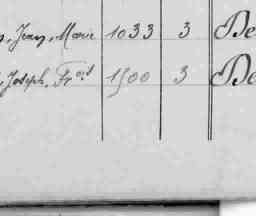 Jean, Marie 1033 3 Be
Joseph, Frois 1500 3 Be